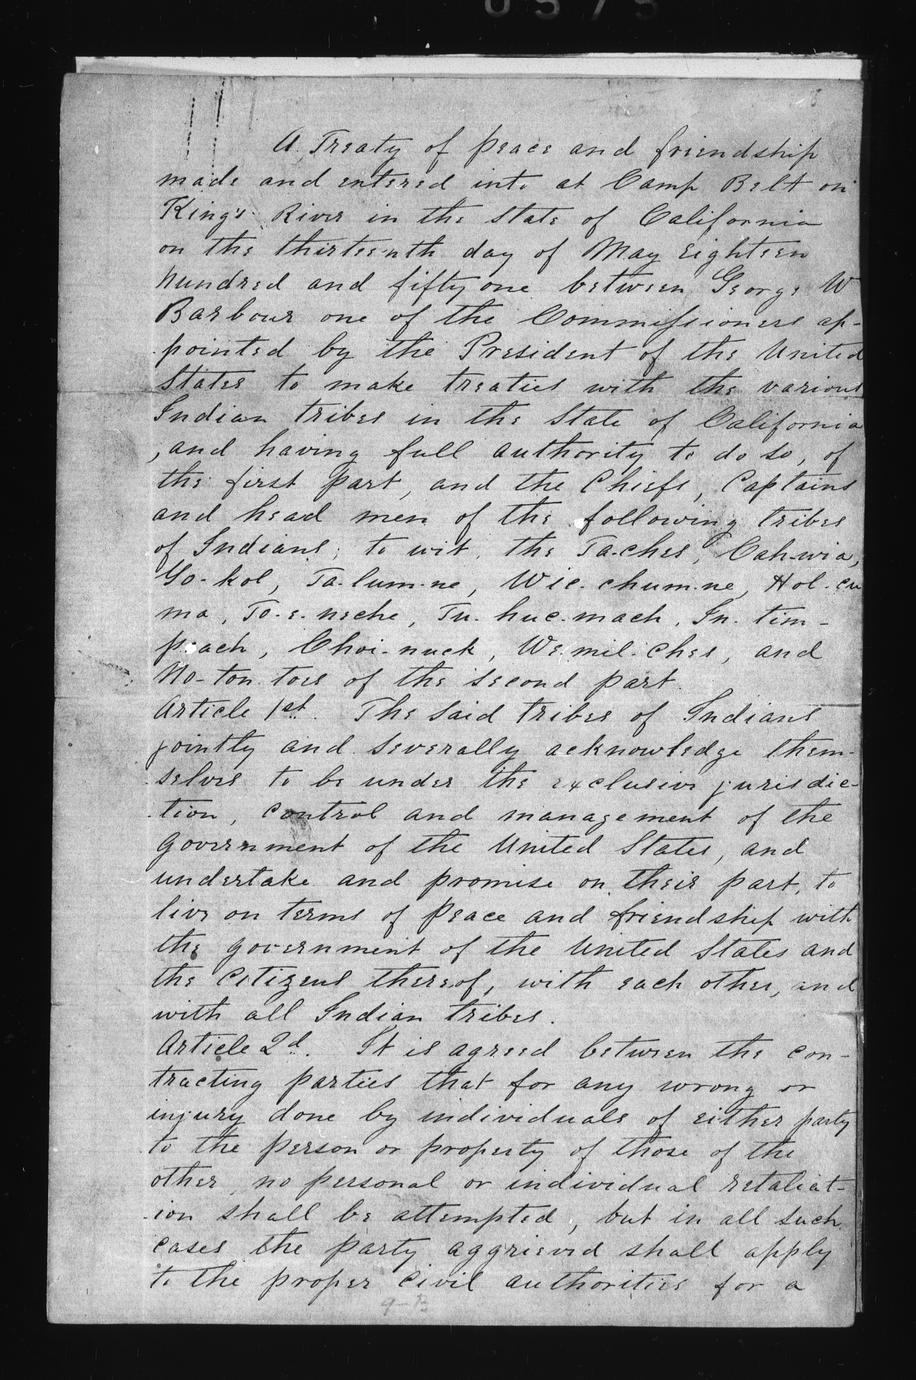 0575
A Treaty of peace and friendship
made and entered into at Camp Belt on
King's River in the State of California
on the thirteenth day of May eighteen
hundred and fifty one between George W
Barbour one of the Commissioners ap-
pointed by the President of the United
States to make treaties with the various
Indian tribes in the State of California
, and having full authority to do so, of
the first part, and the Chiefs, Captains
and head men of the following tribes
of Indians; to wit, the Ta-ches, Cah-wia,
Yo-kol, Ta-lum-ne, Wic-chum-ne, Hol-cu
ma, To-e-neche, Tu-huc-mach, In-tim-
peach, Choi-nuck, We-mil-ches, and
No-ton-toes of the second part.
Article 1st. The said tribes of Indians
jointly and severally acknowledge them-
selves to be under the exclusive jurisdic-
-tion, control and management of the
government of the United States, and
undertake and promise on their part, to
live on terms of peace and friendship with
the government of the United States and
the citizens thereof, with each other, and
with all Indian tribes.
Article 2d. It is agreed between the con-
tracting parties that for any wrong or
injury done by individuals of either party
to the person or property of those of the
other, no personal or individual retaliat-
-ion shall be attempted, but in all such
cases the party aggrieved shall apply
to the proper civil authorities for a
9-B